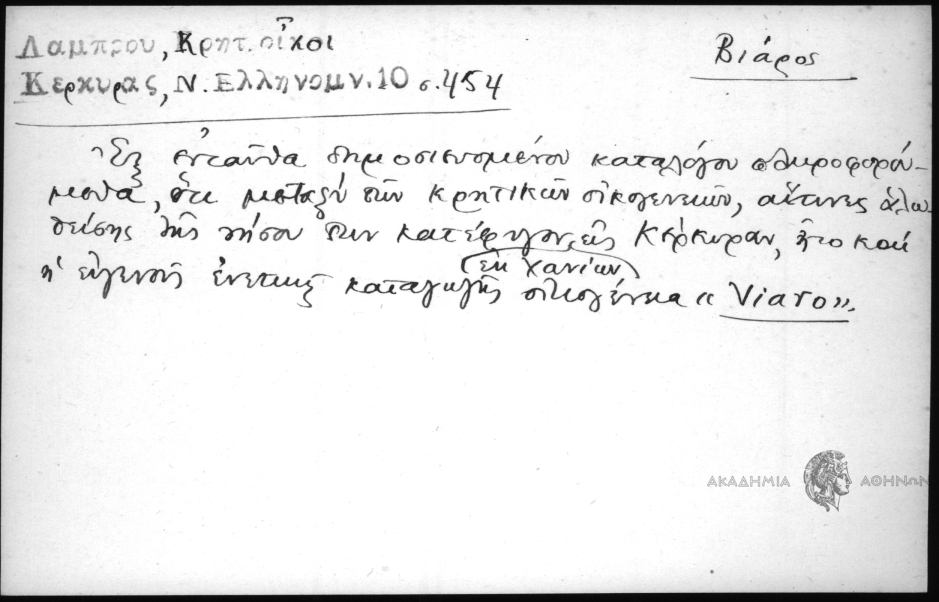 Λαμπρου, Κρητ. οἶκοι
Κερκυρας, Ν. Ελληνομν. 10 σ. 454
Βιάρος
Ἐξ ἐνταῦθα δημοσιευομένου καταλόγου πληροφορού-
μεθα, ὅτι μεταξύ τῶν κρητικῶν οἰκογενειῶν, αἵτινες ἁλω-
θείσης τῆς νήσου των κατέφυγον εἰς Κέρκυραν, ἦτο καί
(ἐκ Χανίων)
ἡ εὐγενής ἐνετικῆς καταγωγῆς οἰκογένεια « Viaro ».
ΑΚΑΔΗΜΙΑ ΑΘΗΝΩΝ